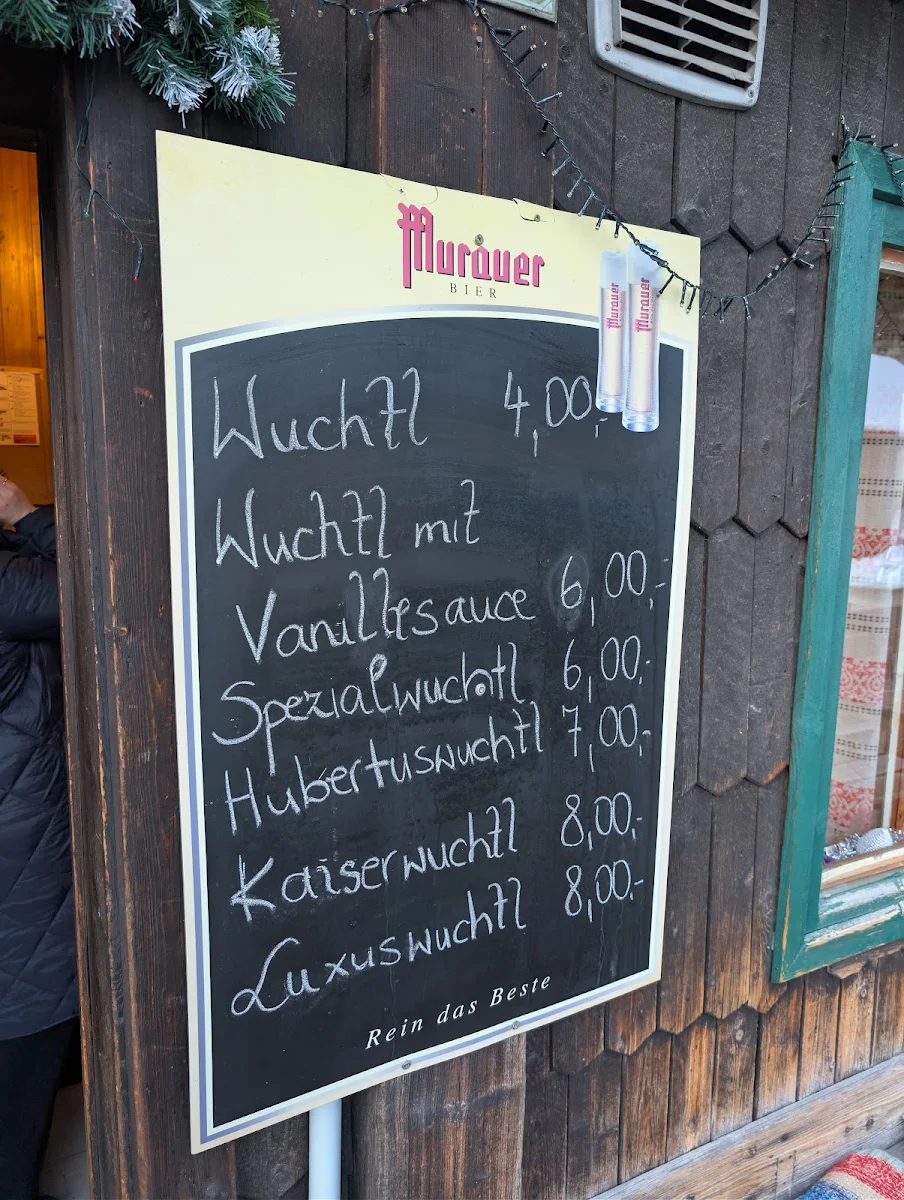 Murauer
BIER
Murauer
Murauer
Wuchtl 4,00,-
Wuchtl mit
Vanillesauce 6,00,-
Spezialwuchtl 6,00,-
Hubertuswuchtl 7,00,-
Kaiserwuchtl 8,00,-
Luxuswuchtl 8,00,-
Rein das Beste